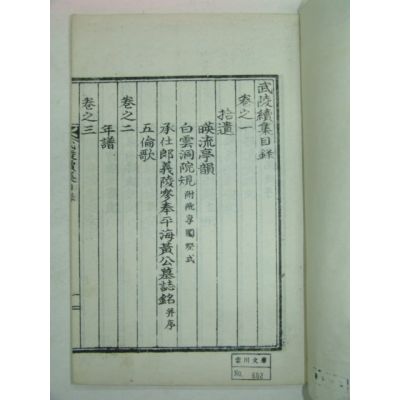 武陵續集目録
卷之一
拾遺
暎流亭韻
白雲洞院規 附祭享圖祭式
承仕郎義陵參奉平海黃公墓誌銘 并序
五倫歌
卷之二
年譜
卷之三
雲川文庫
No.